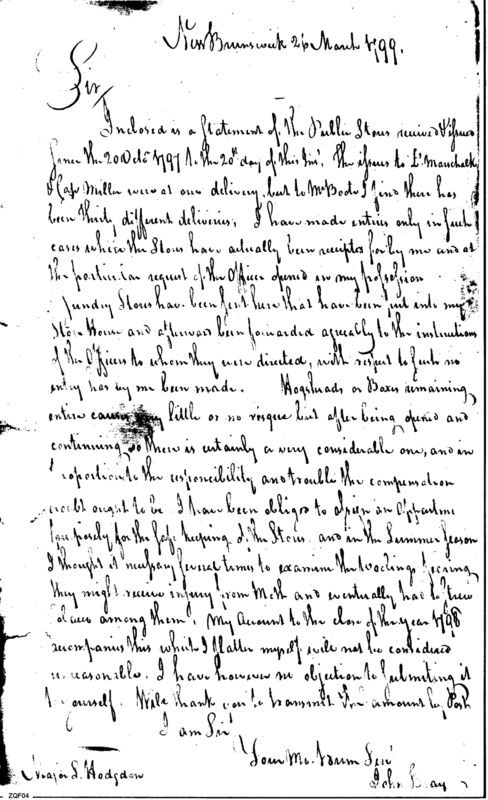 New Brunswick 26 March 1799.
Sir,
Inclosed is a Statement of the Public Stores received & issued
since the 20 Octo 1797 to the 20th day of this Inst. The issues to Lt Marschalk
& Capt Miller were at one delivery, but to Mr Boote I find there has
been thirty different deliveries; I have made entries only in such
cases where the Stores have actually been receipted for by me and at
the particular request of the Officer opened in my possession
Sundry Stores have been sent here that have been put into my
Store House and afterwards been forwarded agreeably to the instructions
of the Officers to whom they were directed, with respect to such no
entry has by me been made. Hogsheads or Boxes remaining
entire causes very little or no risque but after being opened and
continuing so there is certainly a very considerable one, and in
proportion to the responsibility and trouble the compensation
ought to be. I have been obliged to assign an
purposely for the safe keeping of the Stores and in the Summer Season
I thought it necessary several times to examine the Woolings fearing
they might receive injury from Moth and eventually had to strew
among them. My Account to the close of the year 1798
accompanies this which I flatter myself will not be considered
unreasonable. I have however no objection to submiting it
to yourself. Will thank you to transmit the amount by Post
I am Sir
Your Mo. Hum Ser
Major S. Hodgdon
John Bray
ZQF04